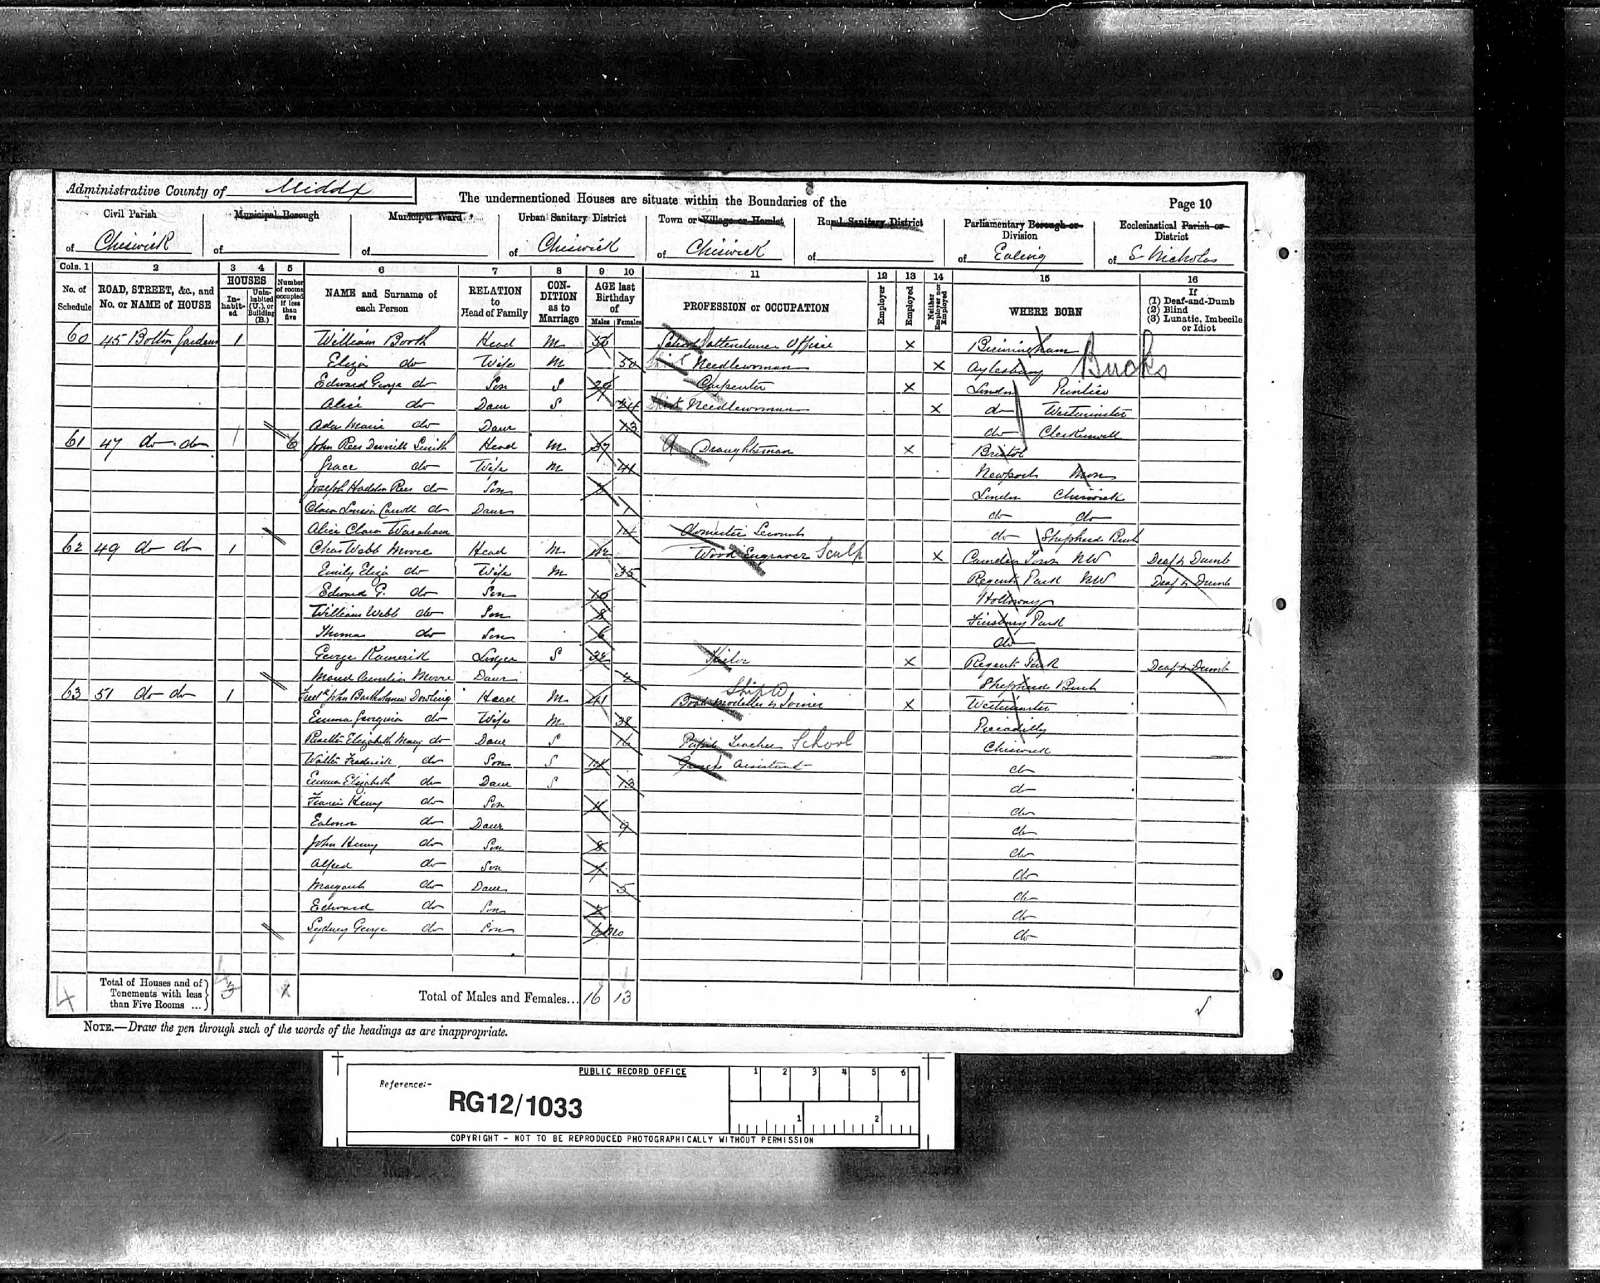 Administrative County of Middx
The undermentioned Houses are situate within the Boundaries of the
Page 10
Civil Parish
of Chiswick
Municipal Borough
of
Municipal Ward
of
Urban Sanitary District
of Chiswick
Town or Village or Hamlet
of Chiswick
Rural Sanitary District
of
Parliamentary Borough or Division
of Ealing
Ecclesiastical Parish or District
of S Nicholas
Cols. 1 2 3 4 5 6 7 8 9 10 11 12 13 14 15 16
No. of Schedule
ROAD, STREET, &c., and No. or NAME of HOUSE
HOUSES
In-habit-ed
Unin-habited (U.), or Building (B.)
Number of rooms occupied if less than five
NAME and Surname of each Person
RELATION to Head of Family
CON-DITION as to Marriage
AGE last Birthday of
Males Females
PROFESSION or OCCUPATION
Employer
Employed
Neither Employer nor Employed
WHERE BORN
If
(1) Deaf-and-Dumb
(2) Blind
(3) Lunatic, Imbecile or Idiot
60 45 Bolton Gardens 1 William Booth Head M School attendance Officer x Birmingham
Eliza do Wife M 50 Needlewoman x Aylesbury Bucks
Edward George do Son S Carpenter x London Pimlico
Alice do Daur S 24 Needlewoman x do Westminster
Ada Maria do Daur 13 do Clerkenwell
61 47 do do 1 John Rees Smith Head M 37 Draughtsman x Bristol
Grace do Wife M 41 Newport Mon
Joseph Haddon Rees do Son London Chiswick
Clara Louisa do Daur 1 do do
Alice Clara 14 Domestic Servant do Shepherd Bush
62 49 do do 1 Chas Webb Moore Head M 42 Wood Engraver Sculp x Camden Town NW Deaf & Dumb
Emily Eliza do Wife M 35 Regents Park NW Deaf & Dumb
Edward G. do Son 10 Holloway
William Webb do Son 8 Finsbury Park
Thomas do Son 6 do
George Lodger S Tailor x Regent Park Deaf & Dumb
Maud Moore Daur Shepherds Bush
63 51 do do 1 Fredk John Bartholomew Dowling Head M 41 Ship W Boat modeller & Joiner x Westminster
Emma Georgina do Wife M 38 Piccadilly
Rosetta Elizabeth Mary do Daur S 16 Pupil Teacher School Chiswick
Walter Frederick do Son S Assistant do
Emma Elizabeth do Daur S 13 do
Francis Henry do Son do
Ealonor do Daur 9 do
John Henry do Son 8 do
Alfred do Son do
Margaret do Daur 5 do
Edward do Son do
Sydney George do Son 6 Mo do
4 Total of Houses and of Tenements with less than Five Rooms ... 3
Total of Males and Females... 16 13
NOTE.—Draw the pen through such of the words of the headings as are inappropriate.
PUBLIC RECORD OFFICE
Reference:-
RG12/1033
1 2 3 4 5 6
1 2
COPYRIGHT - NOT TO BE REPRODUCED PHOTOGRAPHICALLY WITHOUT PERMISSION